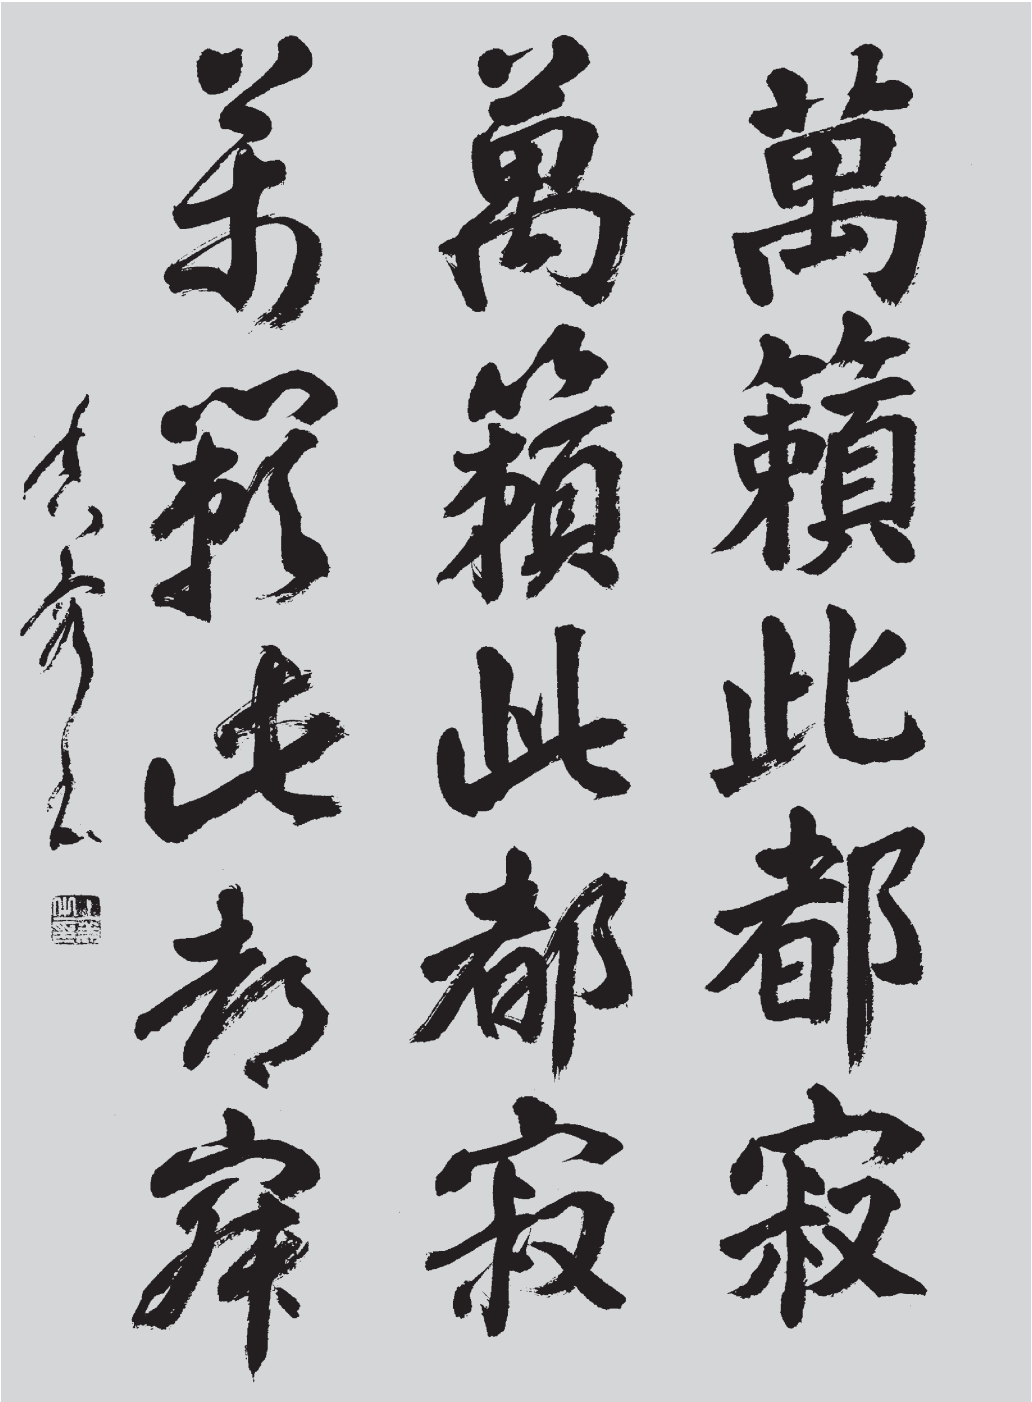 萬籟此都寂
萬籟此都寂
萬籟此都寂